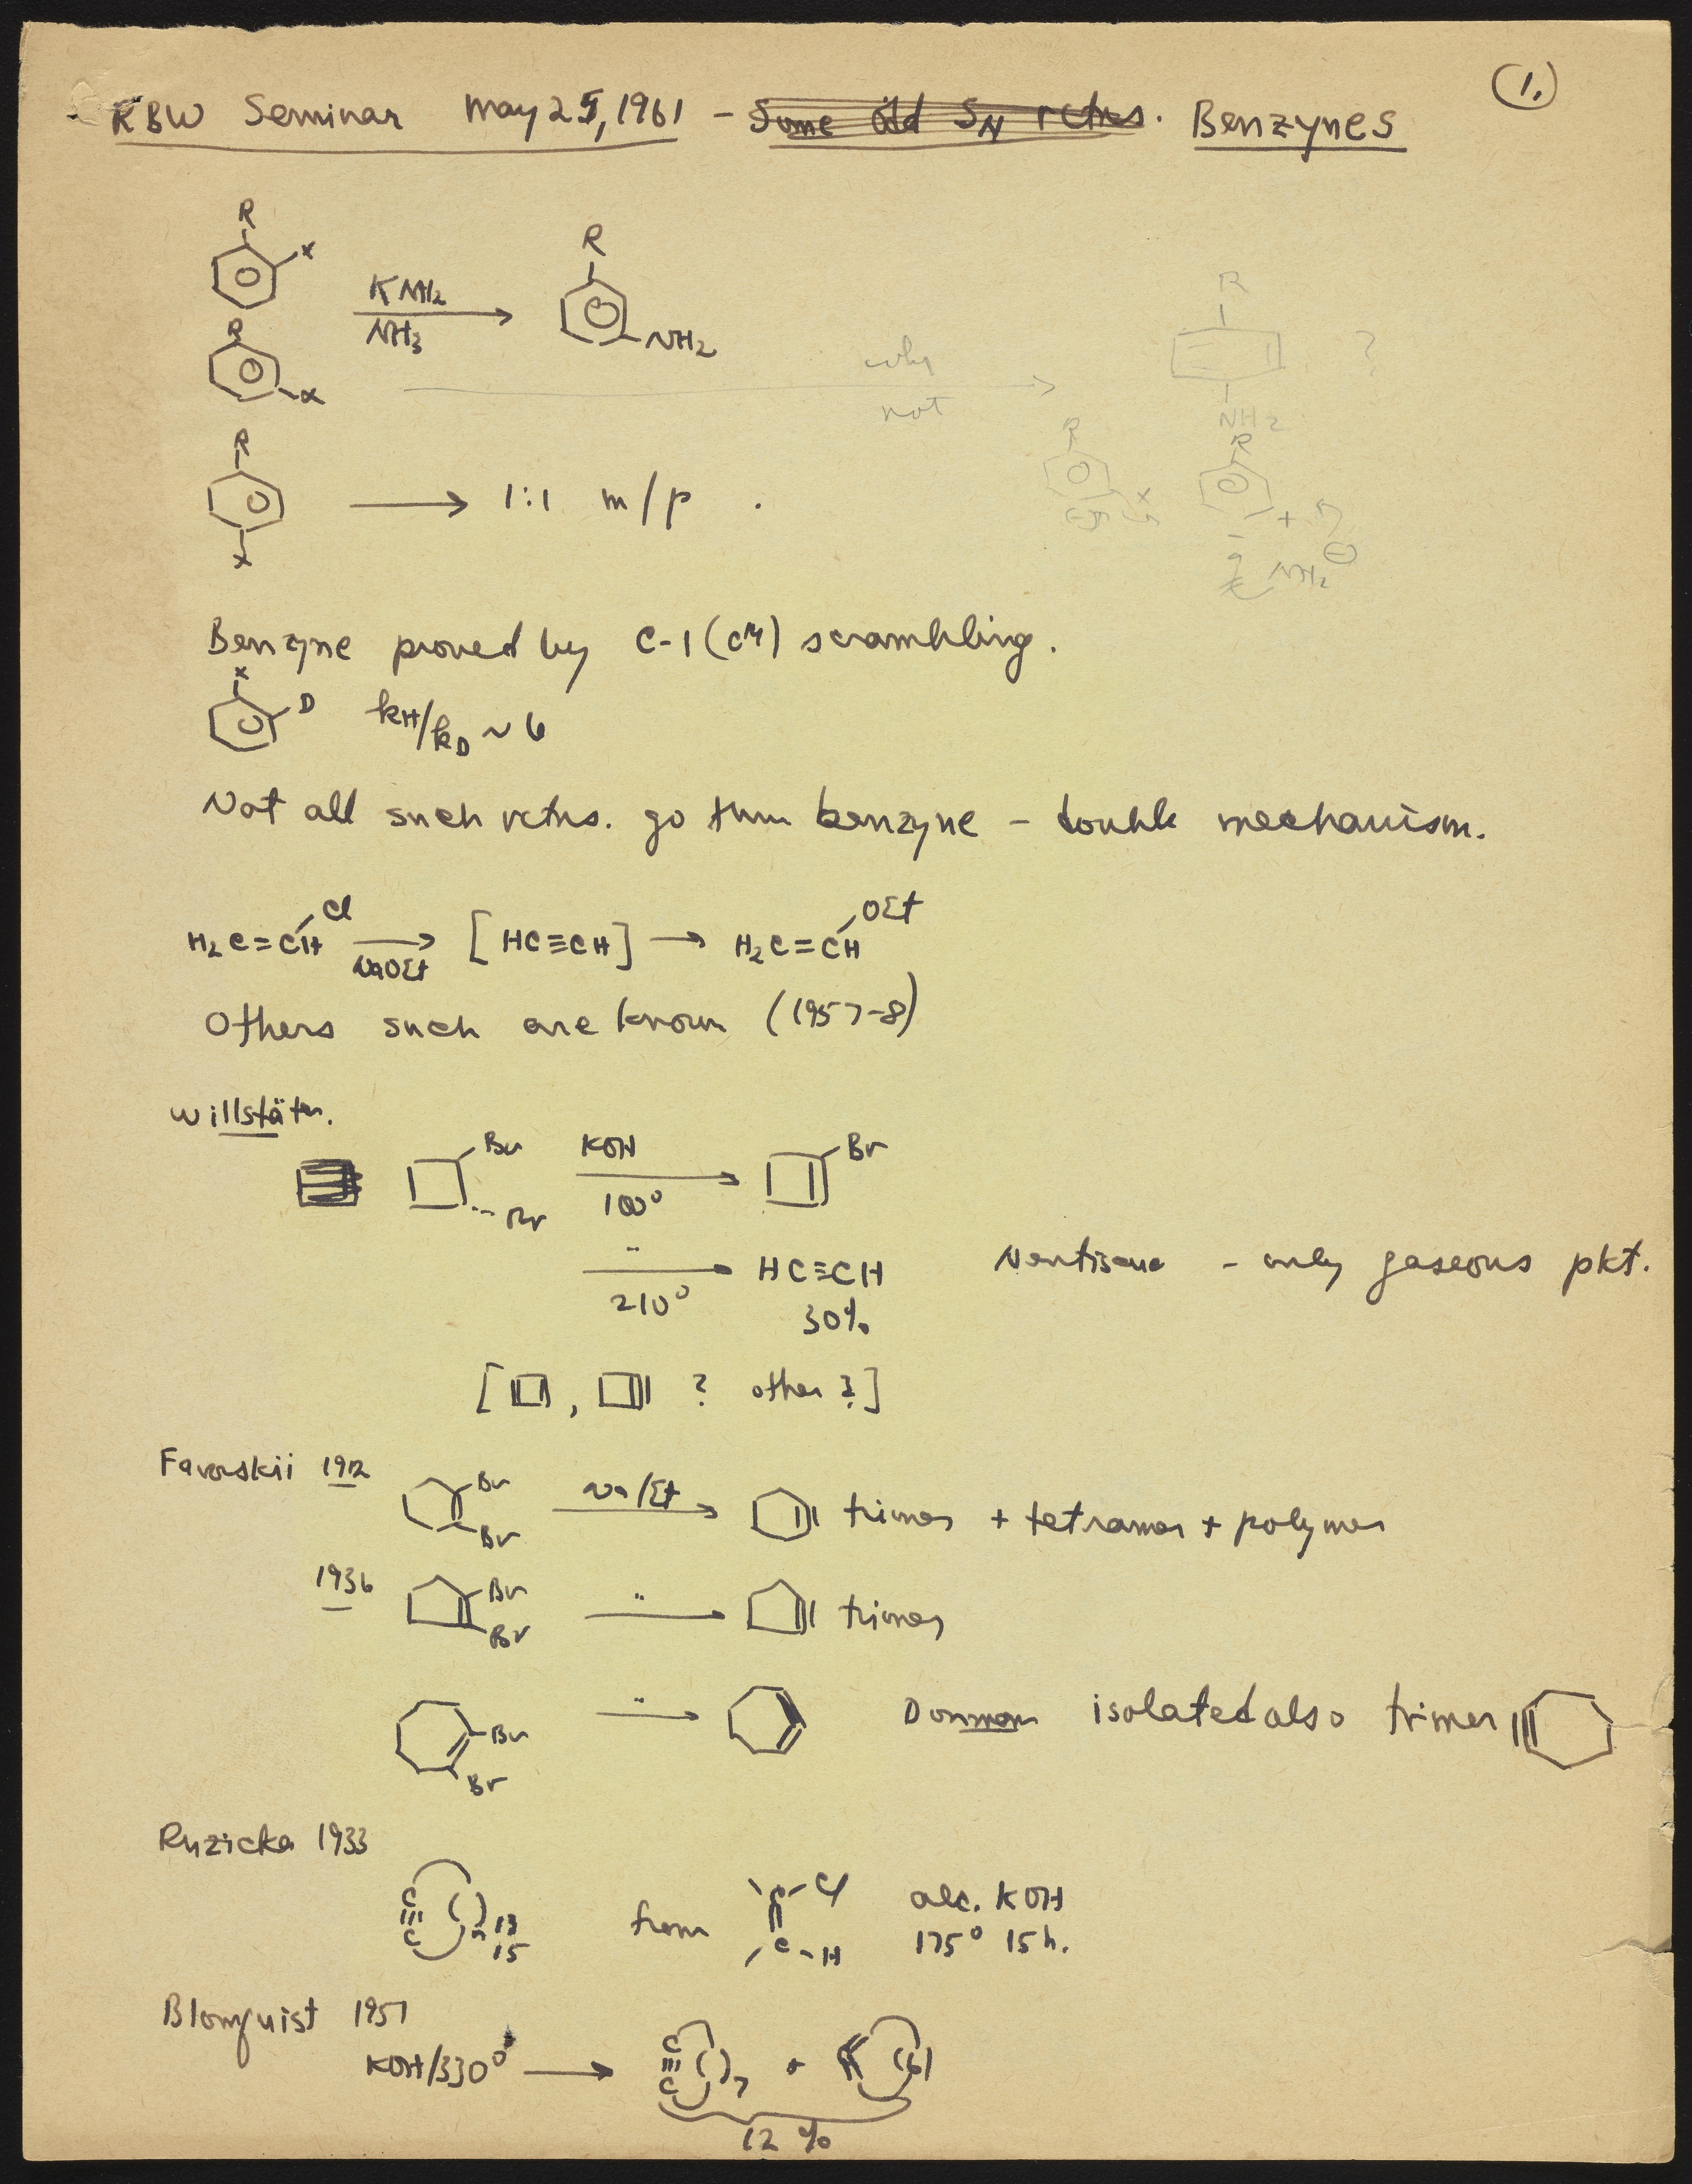 (1.)
RBW Seminar May 25, 1961 - Some Old SN rctns. Benzynes
R
x
KNH2
NH3
R
NH2
R
x
why
not
R
NH2
?
R
x
→ 1:1 m/p .
R
x
R
+
NH2 ⊖
Benzyne proved by C-1 (C14) scrambling.
x
D kH/kD ~ 6
Not all such rctns. go thru benzyne - double mechanism.
H2C=CH Cl → NaOEt [HC≡CH] → H2C=CH OEt
Others such are known (1957-8)
Willstäter.
Br
Br
KOH
100°
Br
"
210°
HC≡CH
30%
- only gaseous pkt.
[ , ? other ? ]
Favorskii 1912
Br
Br
Na/Et
trimer + tetramer + polymer
1936
Br
Br
"
trimer
Br
Br
"
isolated also trimer
Ruzicka 1933
C≡C ( )n 13 15
from
C-Cl
C-H
alc. KOH
175° 15h.
Blomquist 1951
KOH/330° → C≡C ( )7 + (6)
12%